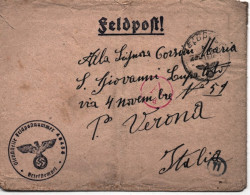 Feldpost!
Alla Signora Corsini Maria
S. Giovanni Lupatoto
via 4 novembre N° 51
Po Verona
Italia
Briefstempel